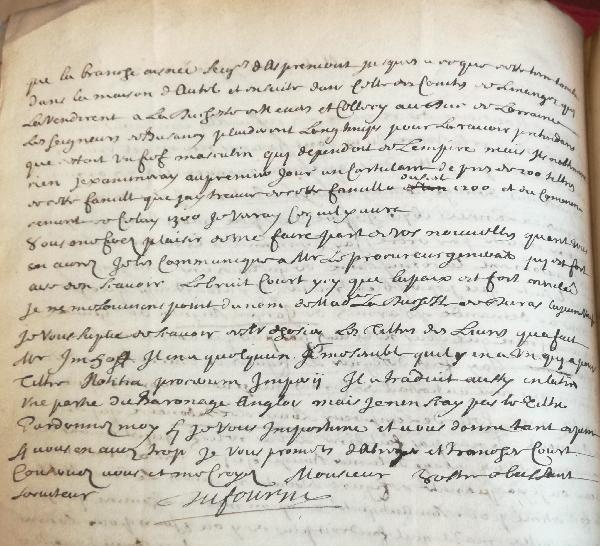 que la branche aisnée seigrs d'Aspremont jusques a ce que cette terre tomba
dans la maison d'Autel et ensuite dans celle des Comtes de Linange qui
la vendirent a la Duchesse et au Duc de Lorraine
Les seigneurs de plaiderent longtemps pour la ravoir pretendans
que c'estoit un fief masculin qui dependoit de l'empire mais ils n'
rien J'examineray au premier jour un Cartulaire de pres de 200 tiltres
de cette famille que j'ay trouvé de cette famille du 1200 et du commen
cement de celuy 1300 Je verray ce qu'il y aura
Vous me ferez plaisir de me faire part de vos nouvelles quand vous
en aurez Je les communique a Mr le procureur general qui est fort
aise de les scavoir Le bruit court icy que la paix est fort
Je ne me souviens point du nom de Made La Duchesse de
Je vous suplie de scavoir de les tiltres des Livres qu'a fait
Mr Imhoff Il m'a quelqu'un Il me semble qu'il y en a un qui a pour
tiltre Notitia procerum Imperij Il a traduit aussy en latin
une partie du Baronage Anglois mais je n'en scay pas le tiltre
Pardonnez moy si je vous importune et vous donne tant de peine
si vous en avez trop Je vous promets d' et trancher court
vous et me croyez Monsieur Vostre obeissant
serviteur Dufourny